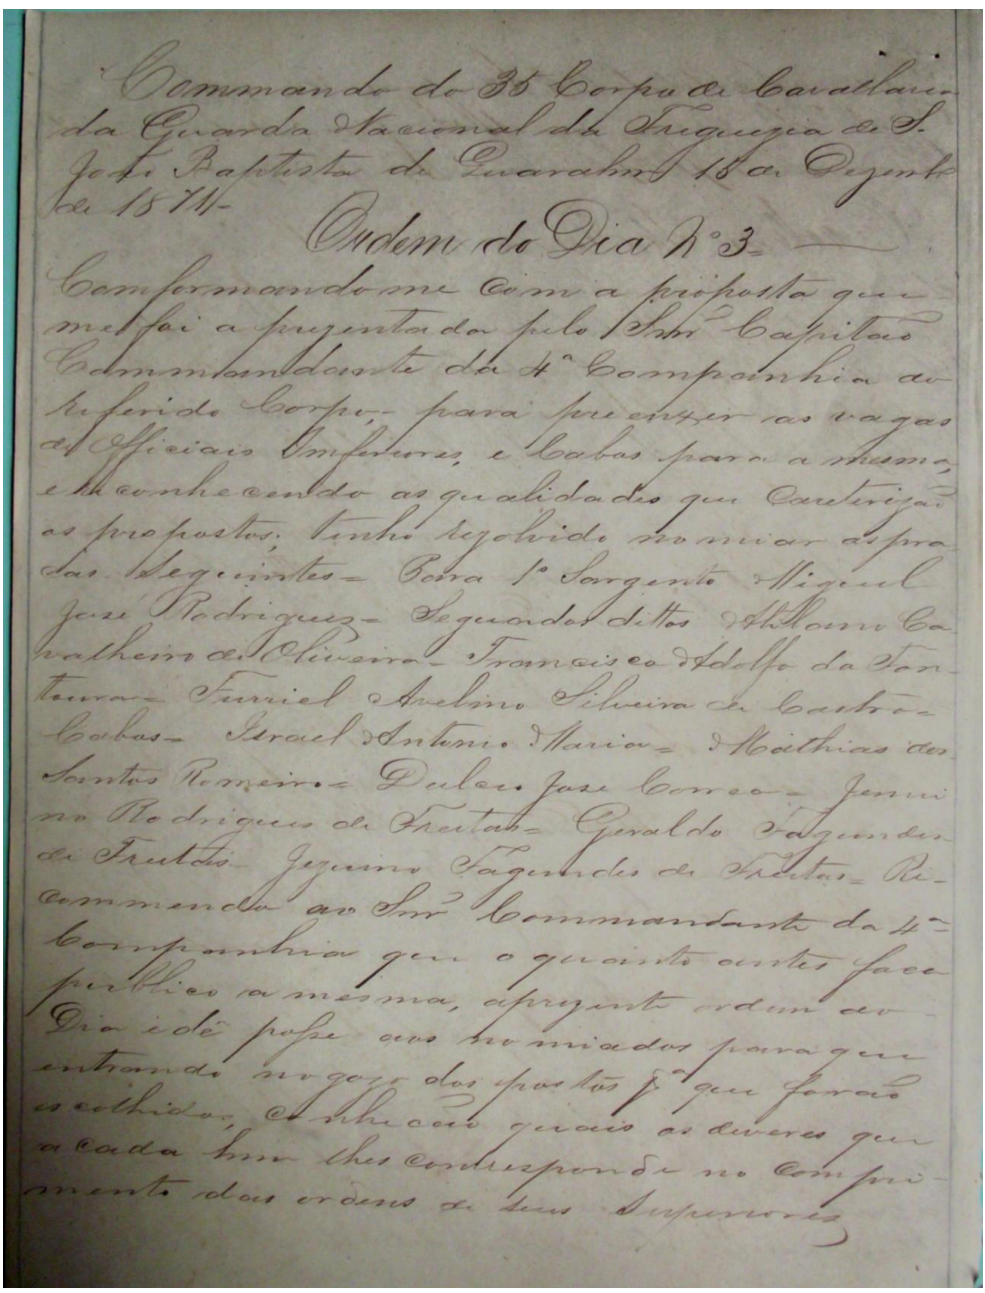 Commando do 35 Corpo de Cavallaria
da Guarda Nacional da Freguezia de S.
João Baptista de Quarahim 18 de Dezembº
de 1874-
Ordem do Dia Nº 3=
Comformandome com a proposta que
me foi a prezentada pelo Snrº Capitão
Commandante da 4ª Companhia do
referido Corpo,- para preenxer as vagas
de Officiais Imferiores, e Cabos para a mesma,
e reconhecendo as qualidades que Careterizão
os propostos; tenho rezolvido nomiar as pra-
ças Seguintes= Para 1º Sargento Miguel
José Rodrigues= Segundos dittos Atilano Ca-
valheiro de Oliveira- Francisco Adolfo da Fon-
toura= Furriel Avelino Silveira de Castro=
Cabos= Israel Antonio Maria= Mathias dos
Santos Romeiro= José Correa=
Rodrigues de Freitas= Geraldo Fagundes
de Freitas- Fagundes de Freitas= Re-
commendo ao Snrº Commandante da 4ª=
Companhia que o quanto antes faça
publico a mesma, aprezente ordem do
Dia e dê posse aos nomiados para que
entrando no gozo dos postos pª que forão
escolhidos, conheção quais os deveres que
a cada hum lhes corresponde no Compri-
mento das ordens de seus Superiores